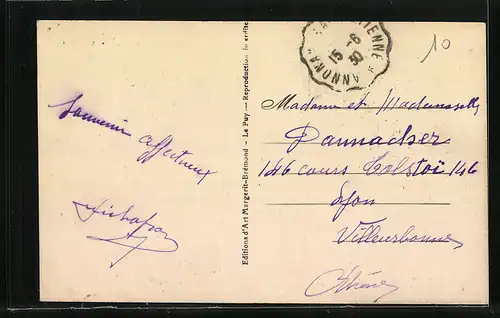 Souvenir affectueux
Editions d'Art Margerit-Brémond - Le Puy — Reproduction interdite
ETIENNE
ANNONAY
15 -6
30
10
Madame et Mademoiselle
Dannacher
146 cours Tolstoï 146
Lyon
Villeurbanne
Rhône